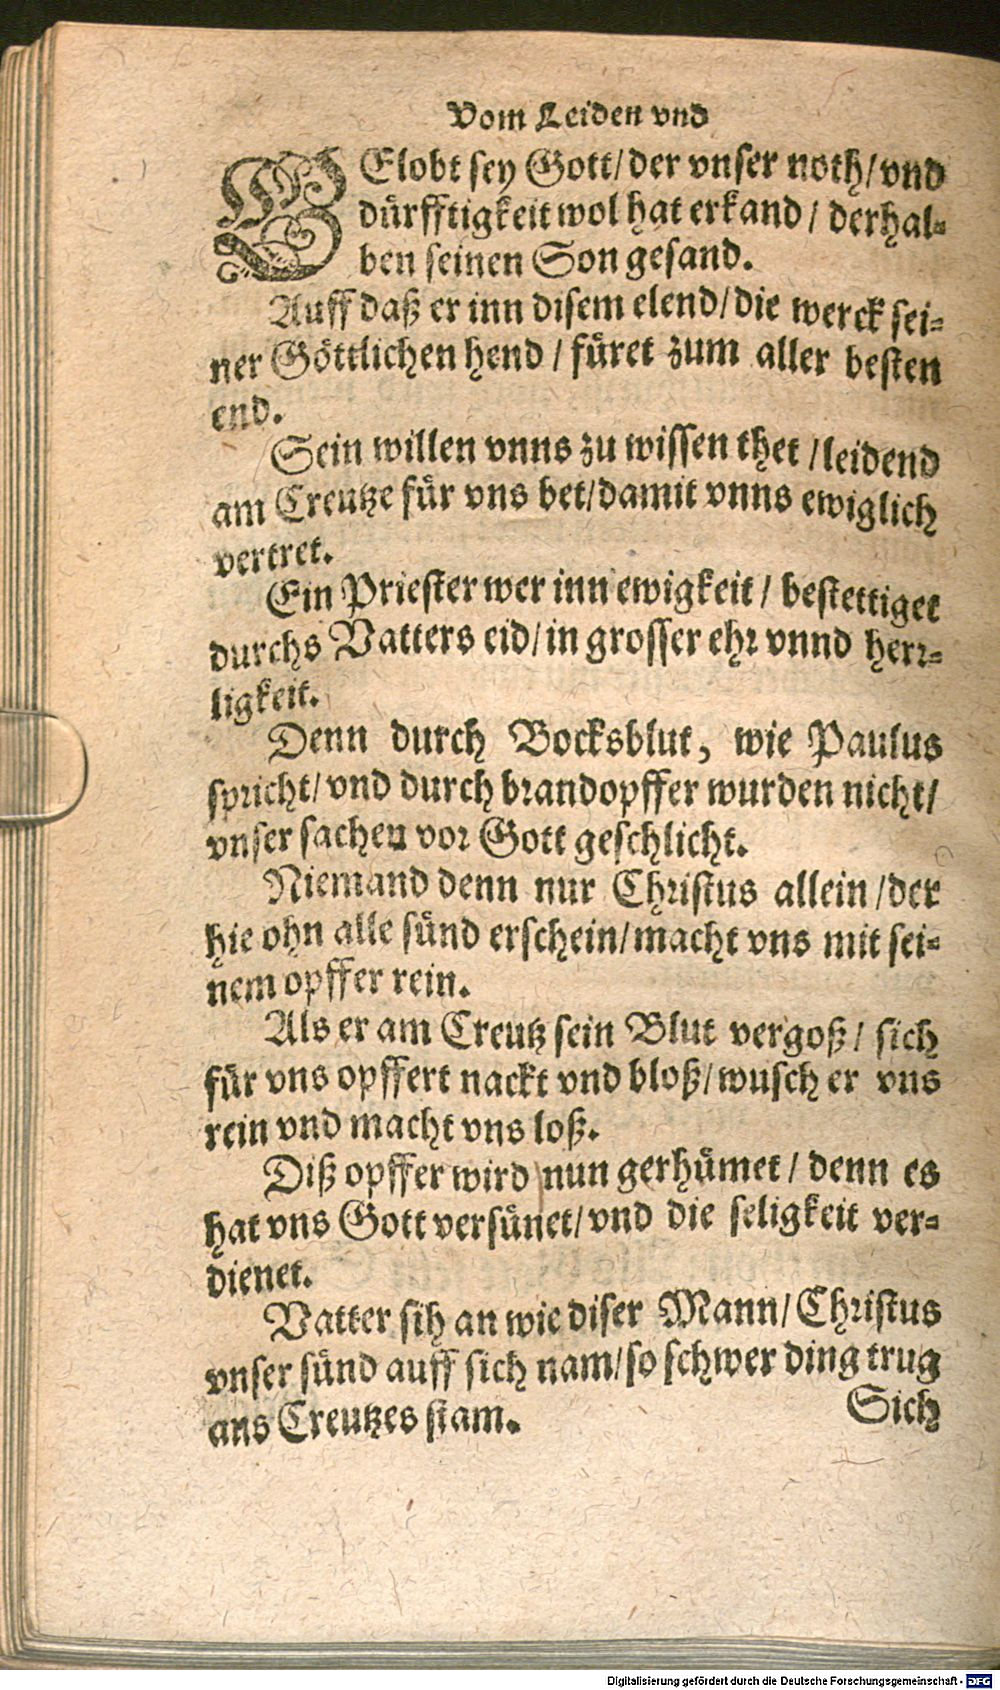 Vom Leiden vnd
GElobt sey Gott/ der vnser noth/ vnd
dürfftigkeit wol hat erkand/ derhal-
ben seinen Son gesand.
Auff daß er inn disem elend/ die werck sei-
ner Göttlichen hend/ füret zum aller besten
end.
Sein willen vnns zu wissen thet/ leidend
am Creutze für vns bet/ damit vnns ewiglich
vertret.
Ein Priester wer inn ewigkeit/ bestettiget
durchs Vatters eid/ in grosser ehr vnnd herr-
ligkeit.
Denn durch Bocksblut, wie Paulus
spricht/ vnd durch brandopffer wurden nicht/
vnser sachen vor Gott geschlicht.
Niemand denn nur Christus allein/ der
hie ohn alle sünd erschein/ macht vns mit sei-
nem opffer rein.
Als er am Creutz sein Blut vergoß/ sich
für vns opffert nackt vnd bloß/ wusch er vns
rein vnd macht vns loß.
Diß opffer wird nun gerhümet/ denn es
hat vns Gott versünet/ vnd die seligkeit ver-
dienet.
Vatter sih an wie diser Mann/ Christus
vnser sünd auff sich nam/ so schwer ding trug
ans Creutzes stam.
Sich
Digitalisierung gefördert durch die Deutsche Forschungsgemeinschaft - DFG